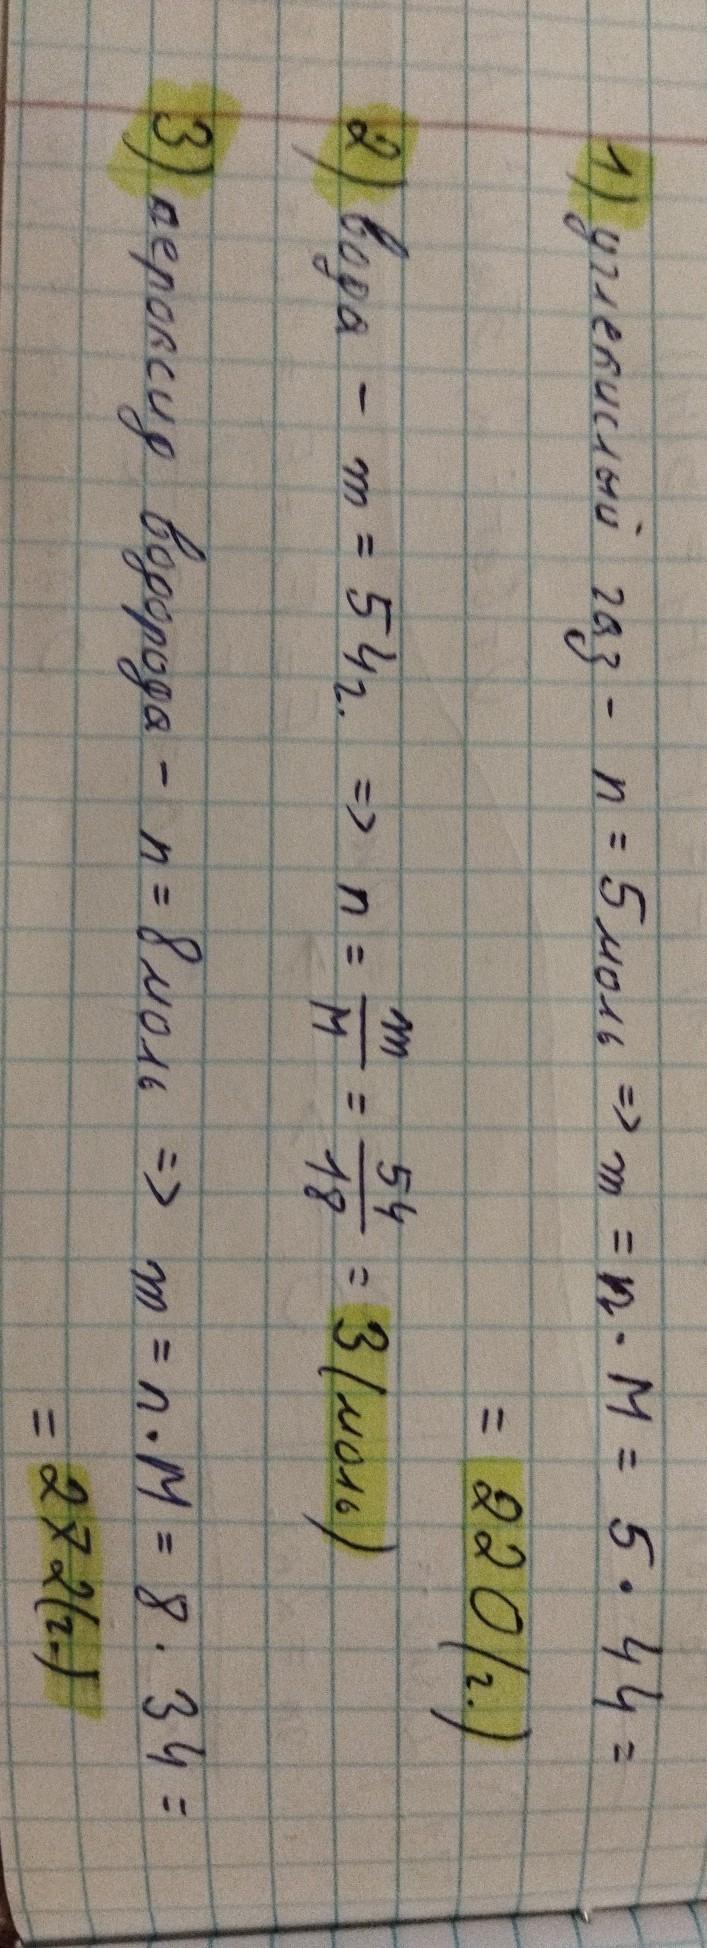 1) углекислый газ - n = 5 моль => m = n · M = 5 · 44 =
= 220 (г.)
2) вода - m = 54 г. => n = m/M = 54/18 = 3 (моль)
3) пероксид водорода - n = 8 моль => m = n · M = 8 · 34 =
= 272 (г.)